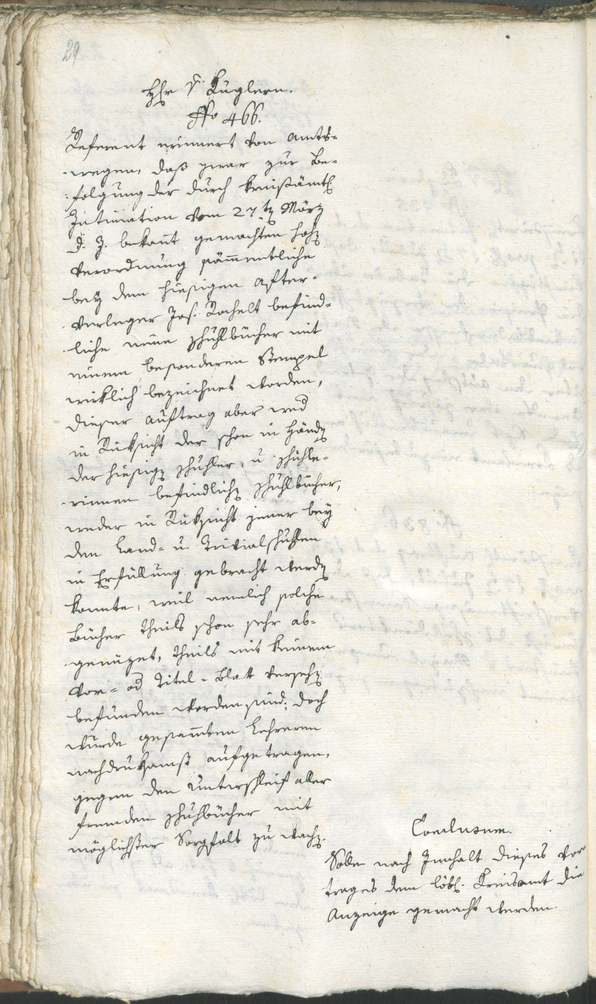 29
Hr. v. Kuglern.
No 466.
Referent erinnert von Amts-
wegen, daß zwar zur Be-
folgung der durch kreisämtl
Intimation vom 27t März
d. J. bekant gemachten hoh
Verordnung sämmentliche
bey dem hiesigen After-
verleger Jos. befind-
liche neue Schuhlbücher mit
einem besonderen Stempel
wirklich bezeichnet worden,
dieser Auftrag aber weder
in Rüksicht der schon in Händ
der hiesig Schuhler, u Schuhle-
rinnen befindlich Schuhlbücher,
weder in Rüksicht jener bey
den Land- u Trivialschuhlen
in Erfüllung gebracht werd
konnte, weil nemlich solche
Bücher theils schon sehr ab-
genüzet, theils mit keinem
Vor- od Titel-Blat verseh
befunden worden sind; doch
wurde gesammten Lehreren
nachdruksamst aufgetragen,
gegen den Unterschleif aller
fremden Schuhlbücher mit
möglichster Sorgfalt zu wach.
Conclusum.
Solle nach Innhalt dieses Vor
trages dem löbl. Kreisamt die
Anzeige gemacht werden.